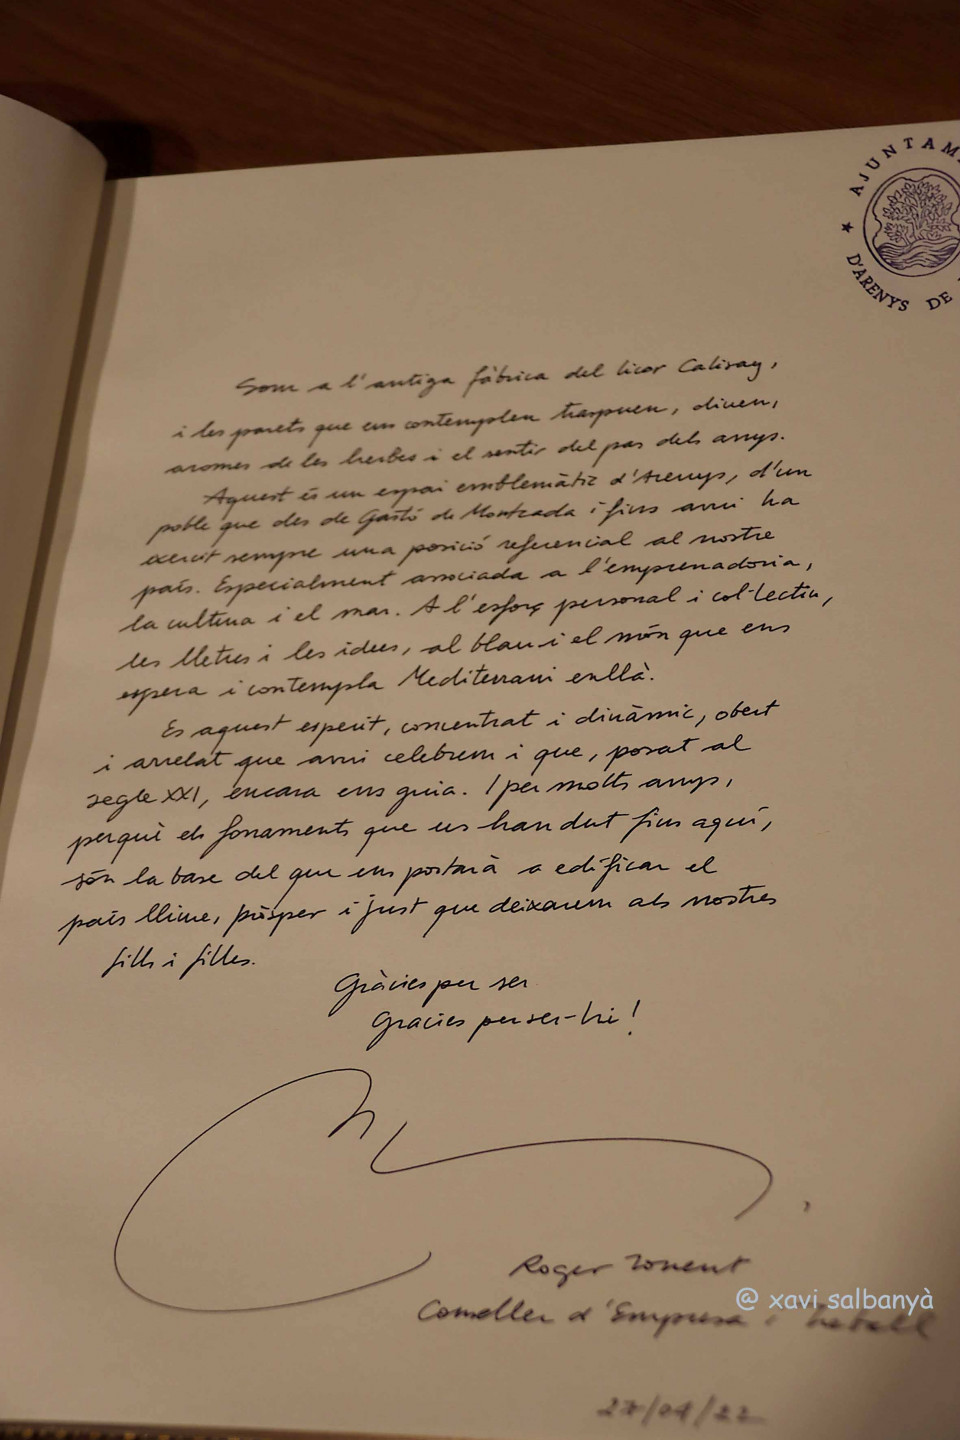 AJUNTAM
D'ARENYS DE
Som a l'antiga fàbrica del licor Calisay,
i les parets que ens contemplen traspuen, diuen,
aromes de les herbes i el sentir del pas dels anys.
Aquest és un espai emblemàtic d'Arenys, d'un
poble que des de Gastó de Montcada i fins avui ha
exercit sempre una posició referencial al nostre
país. Especialment associada a l'emprenadoria,
la cultura i el mar. A l'esforç personal i col·lectiu,
les lletres i les idees, al blau i el món que ens
espera i contempla Mediterrani enllà.
Es aquest esperit, concentrat i dinàmic, obert
i arrelat que avui celebrem i que, posat al
segle XXI, encara ens guia. I per molts anys,
perquè els fonaments que us han dut fins aquí,
són la base del que ens portarà a edificar el
país lliure, pròsper i just que deixarem als nostres
fills i filles.
Gràcies per ser
Gracies per ser-hi!
Roger Torrent
Conseller d'Empresa i Treball
@ xavi salbanyà